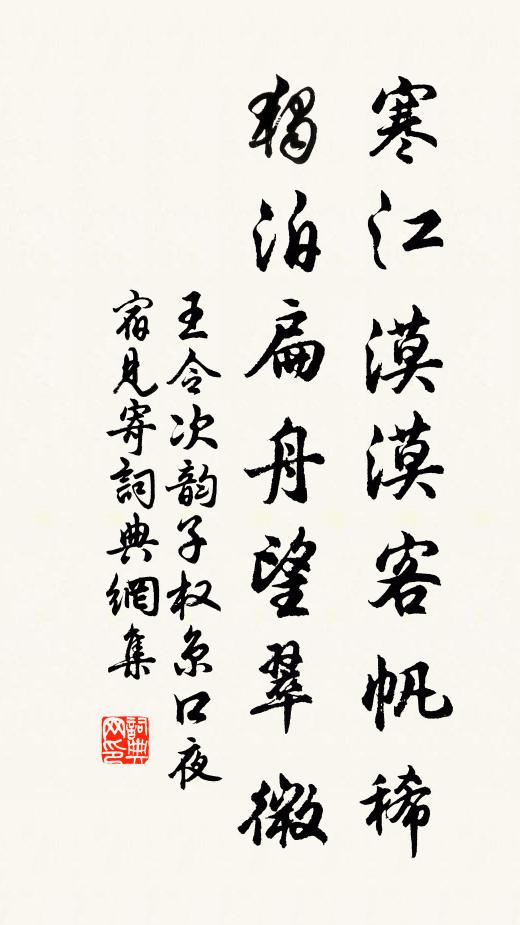 寒江漠漠客帆稀
獨泊扁舟望翠微
王令次韵子权京口夜
宿見寄詞典網集
詞典
网印